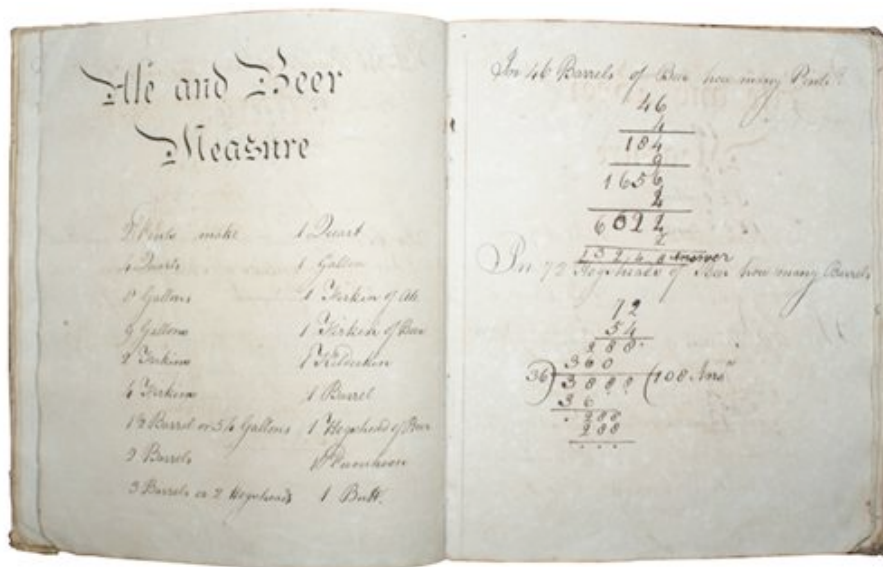 Ale and Beer
Measure
2 Pints make 1 Quart
4 Quarts 1 Gallon
8 Gallons 1 Firkin of Ale
9 Gallons 1 Firkin of Beer
2 Firkins 1 Kilderkin
4 Firkins 1 Barrel
1½ Barrel or 54 Gallons 1 Hogshead of Beer
2 Barrels 1 Puncheon
3 Barrels or 2 Hogsheads 1 Butt.
In 46 Barrels of Beer how many Pints?
46
4
184
9
1656
4
6624
2
13248 Answer
In 72 Hogsheads of Beer how many Barrels
72
54
288
360
36) 3888 (108 Ansr
36
288
288